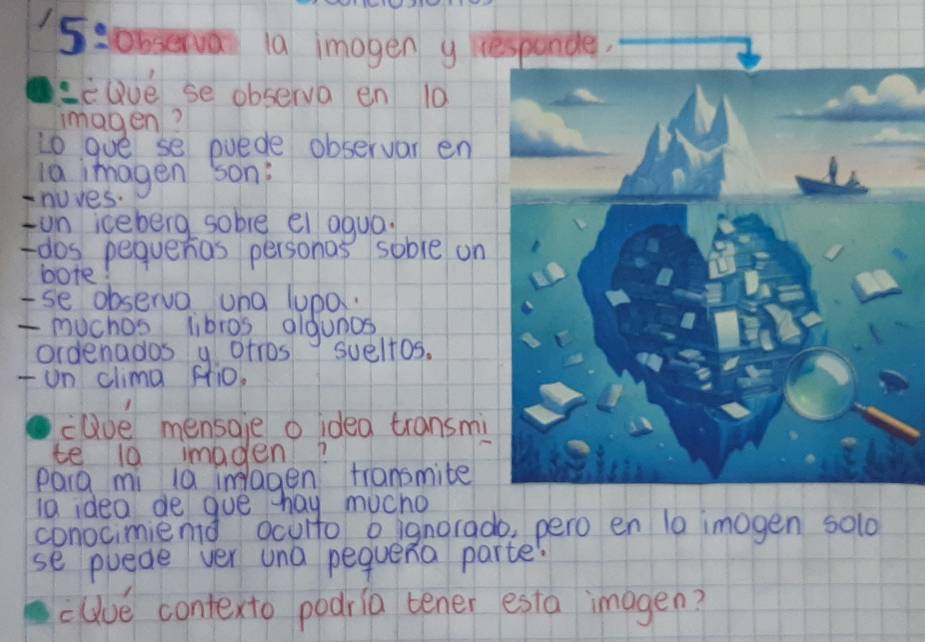 5: Observa la imagen y responde.
- ¿Qué se observa en la
imagen?
Lo que se puede observar en
la imagen son:
- nuves.
- un iceberg sobre el agua.
- dos pequeñas personas sobre un
bote.
- se observa una lupa.
- muchos libros algunos
ordenados y otros sueltos.
- un clima frio.
¿Qué mensaje o idea transmi
te la imagen?
Para mi la imagen transmite
la idea de que hay mucho
conocimiento oculto o ignorado, pero en la imagen solo
se puede ver una pequeña parte.
¿Qué contexto podría tener esta imagen?